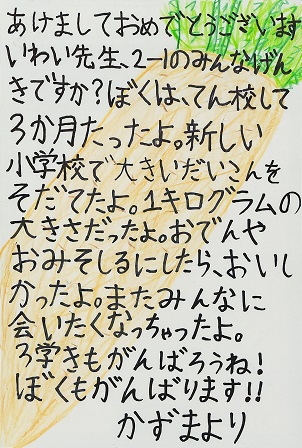 あけましておめでとうございます
いわい先生、2-1のみんなげん
きですか?ぼくは、てん校して
3か月たったよ。新しい
小学校で大きいだいこんを
そだてたよ。1キログラムの
大きさだったよ。おでんや
おみそしるにしたら、おいし
かったよ。またみんなに
会いたくなっちゃったよ。
3学きもがんばろうね!
ぼくもがんばります!!
かずまより